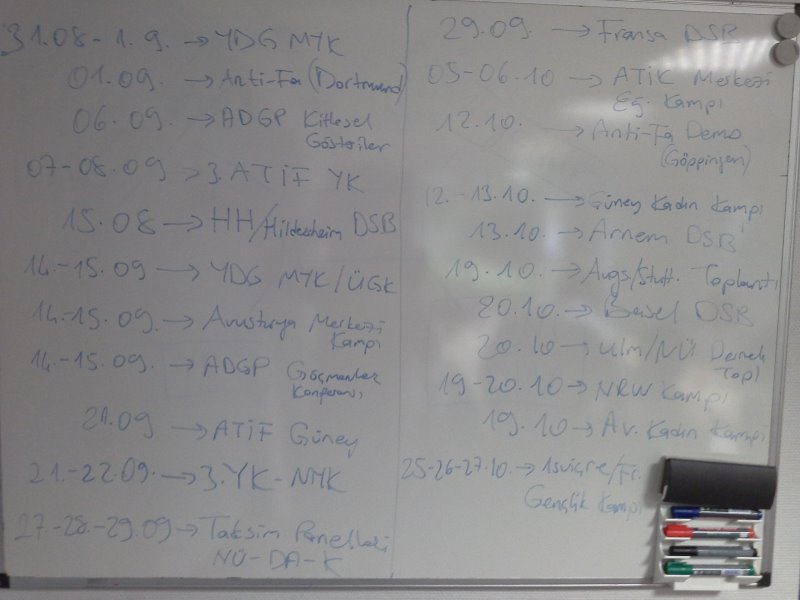 31.08-1.9. → YDG MYK
01.09. → Anti-Fa (Dortmund)
06.09. → ADGP Kitlesel
Gösteriler
07-08.09 → 3. ATİF YK
15.08 → HH/Hildesheim DSB
14.-15.09 → YDG MYK/ÜGK
14.-15.09. → Avusturya Merkezi
Kampı
14.-15.09. → ADGP Göçmenler
Konferansı
21.09 → ATİF Güney
21.-22.09. → 3. YK-NYK
27-28.-29.09 → Taksim Panelleri
NÜ-DA-K
29.09. → Fransa DSB
05-06.10 → ATİK Merkezi
Eğ. Kampı
12.10. → Anti-Fa Demo
(Göppingen)
12.-13.10. → Güney Kadın Kampı
13.10. → Arnem DSB
19.10. → Augs/Stutt. Toplantı
20.10. → Basel DSB
20.10 → Ulm/NÜ Dernek
Topl
19-20.10 → NRW Kampı
19.10 → Av. Kadın Kampı
25-26-27.10. → İsviçre/Fr.
Gençlik Kampı